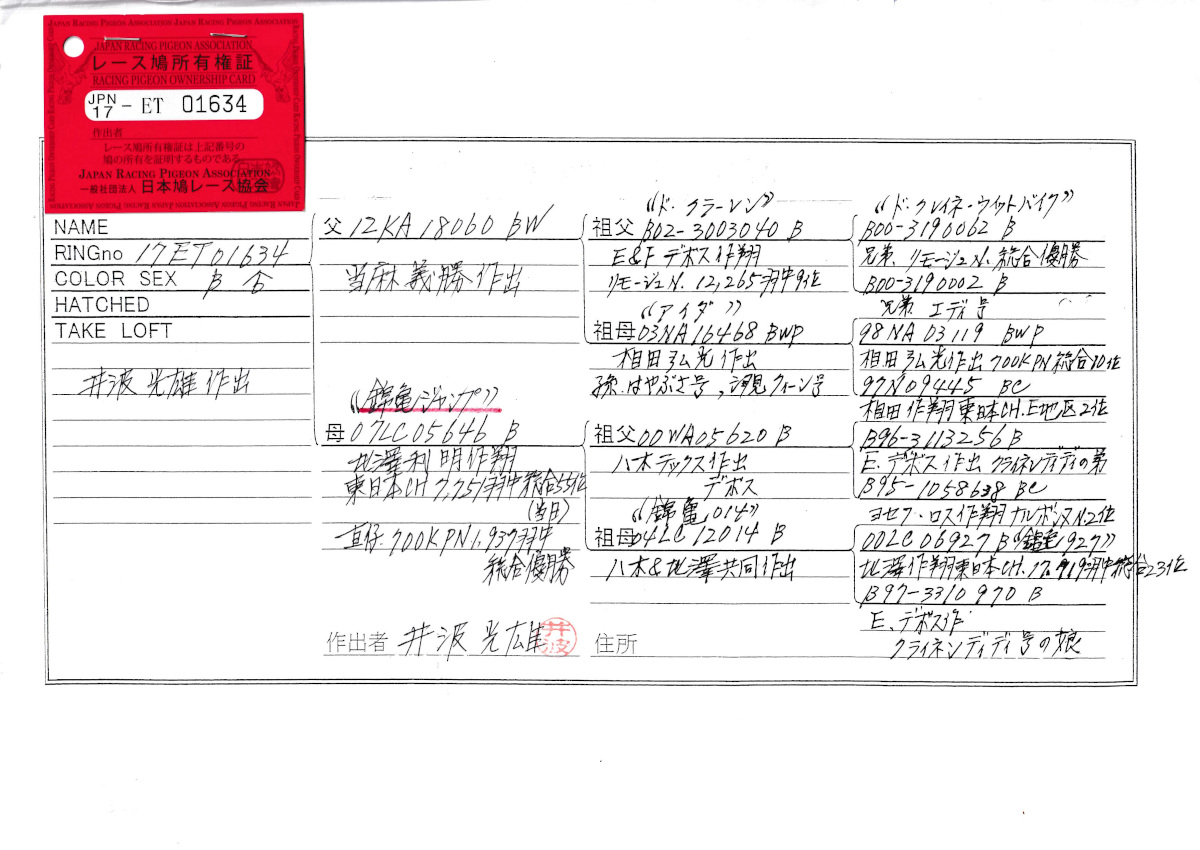 JAPAN RACING PIGEON ASSOCIATION JAPAN RACING PIGEON ASSOCIATION
JAPAN RACING PIGEON ASSOCIATION
レース鳩所有権証
RACING PIGEON OWNERSHIP CARD
JPN 17 - ET 01634
作出者
レース鳩所有権証は上記番号の
鳩の所有を証明するものである
JAPAN RACING PIGEON ASSOCIATION
一般社団法人 日本鳩レース協会
NAME
RINGno 17ET01634
COLOR SEX B ♀
HATCHED
TAKE LOFT
井波光雄作出
父 12KA18060 BW
当麻義勝作出
《錦亀ジャンプ》
母 07LC05646 B
北澤利明作翔
東日本CH 7,751羽中総合55位
(当日)
直仔.700KPN1,937羽中
総合優勝
作出者 井波光雄 井波
《ド・クラーレン》
祖父 B02-3003040 B
E&F デボス作翔
リモージュN. 12,265羽中9位
《アイダ》
祖母 03NA16468 BWP
相田弘光作出
孫.はやぶさ号,汐見クィーン号
祖父 00WA05620 B
八木テックス作出
デボス
《錦亀014》
祖母 04LC12014 B
八木&北澤共同作出
住所
《ド・クレイネ・ウィットバイク》
B00-3190062 B
兄弟.リモージュN.総合優勝
B00-3190002 B
兄弟 エディ号
98NA03119 BWP
相田弘光作出 700KPN総合10位
97N09445 BC
相田作翔東日本CH.E地区2位
B96-3113256 B
E.デボス作出 クライネンディディの弟
B95-1058638 BC
ヨセフ・ロス作翔ナルボンヌN.2位
00LC06927 B《錦亀927》
北澤作翔東日本CH.17,919羽中総合23位
B97-3310970 B
E.デボス作
クライネンディディ号の娘